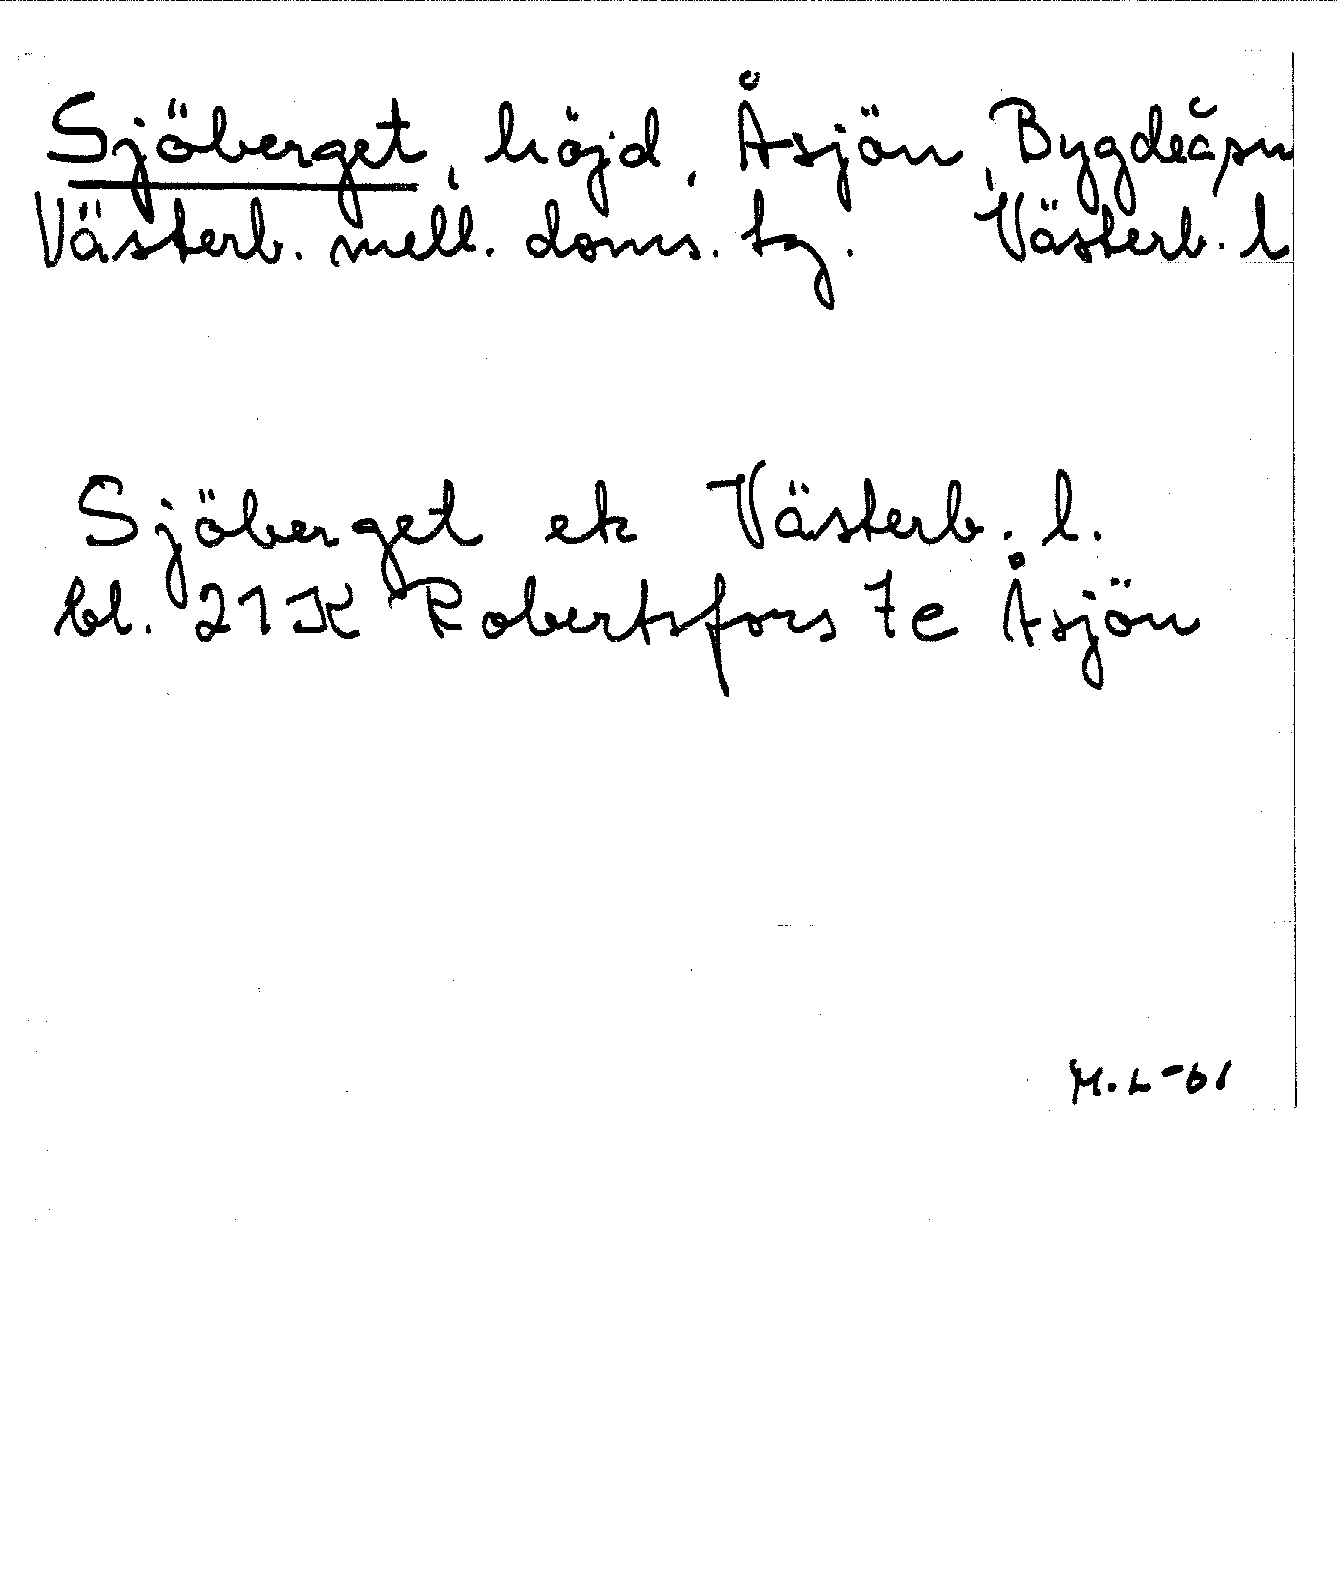 Sjöberget, höjd, Åsjön, Bygdeå sn
Västerb. mell. doms. tg. Västerb. l
Sjöberget ek Västerb. l.
bl. 21K Robertsfors 7e Åsjön
M.L-61